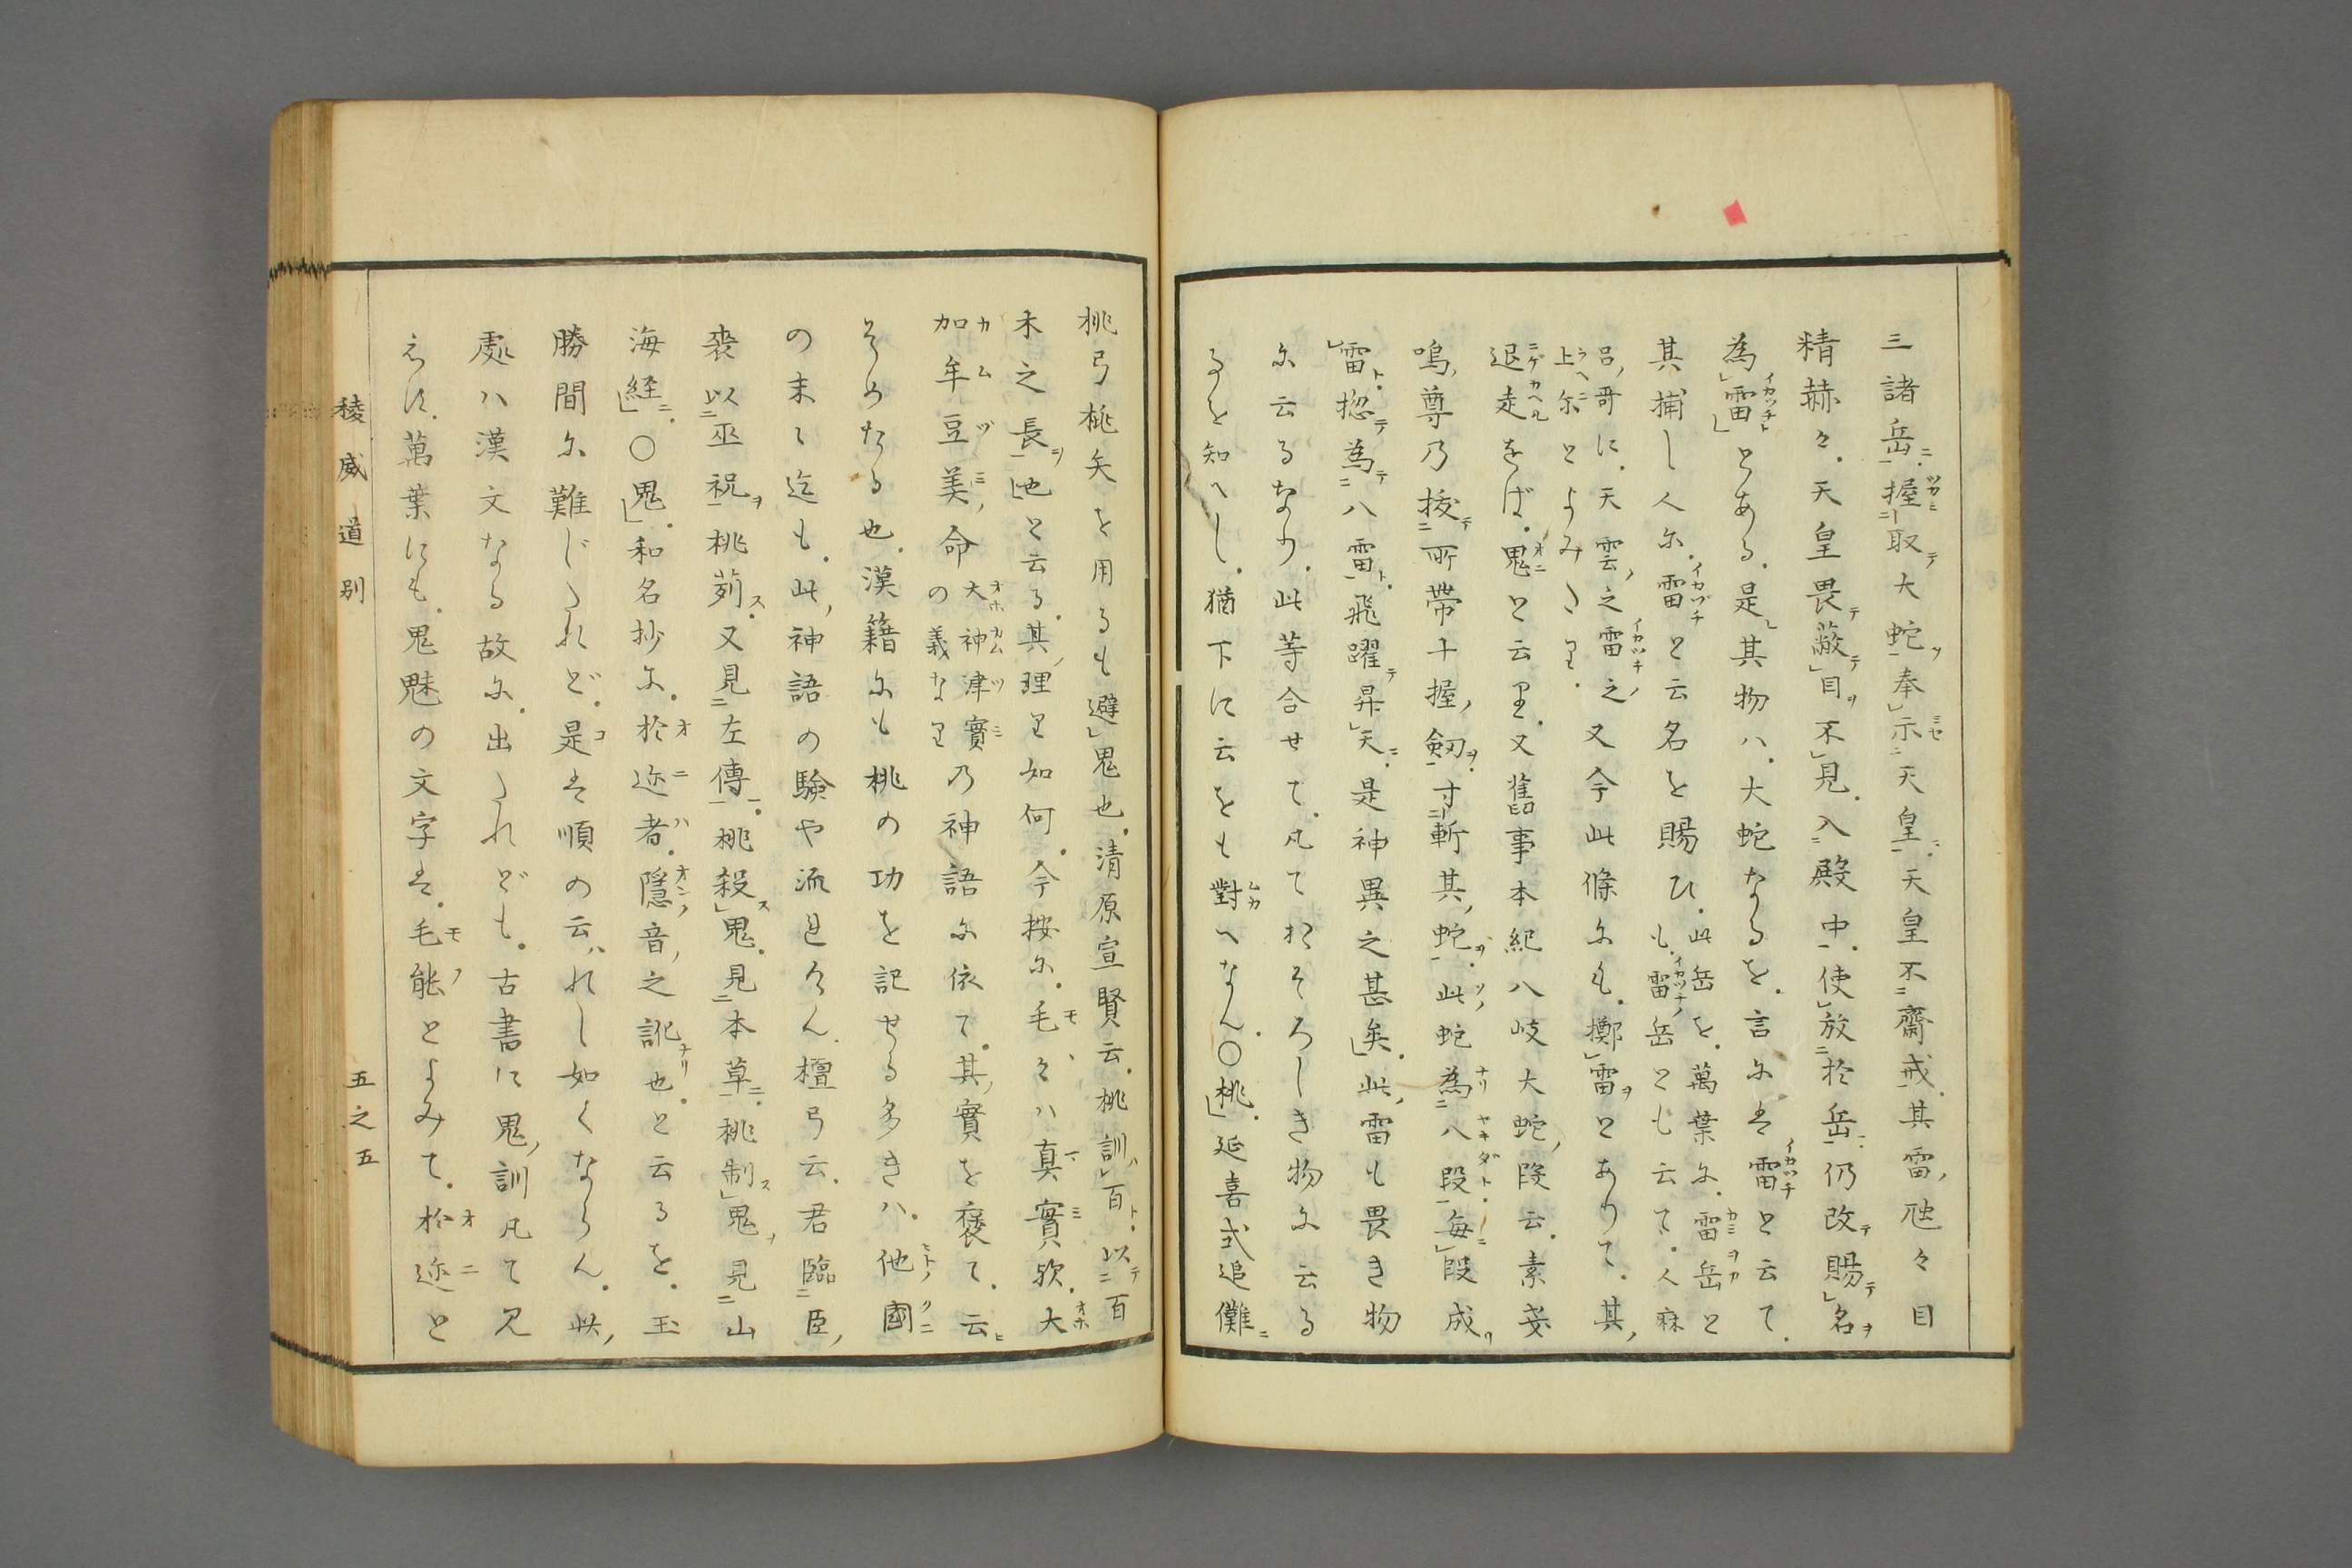 三諸岳握取大蛇奉示天皇天皇不齋戒其雷虺々目
精赫々天皇畏蔽目不見入殿中使放於岳仍改賜名
為雷とある是其物ハ大蛇なるを言尓は雷と云て
其捕し人尓雷と云名を賜ひ此岳を萬葉尓雷岳と
も雷岳とも云て人麻
呂哥に天雲之雷之
上尓とよみたり又今此條尓も擲雷とありて其
退走をば鬼と云り又舊事本紀八岐大蛇段云素戔
嗚尊乃拔所帶十握劔寸斬其蛇此蛇為八段毎段成
雷惣為八雷飛躍昇天是神異之甚矣此雷も畏き物
尓云るなり此等合せて凡ておそろしき物尓云る
るを知へし猶下に云をも對へなん○桃延喜式追儺
桃弓桃矢を用るも避鬼也清原宣賢云桃訓百以百
木之長也と云る其理り如何今按尓毛々ハ真實歟大
加牟豆美命大神津實
の義なり乃神語尓依て其實を褒て云
そめなる也漢籍尓も桃の功を記せる多きハ他國
の末々迄も此神語の驗や流れけん檀弓云君臨臣
喪以巫祝桃茢又見左傳桃殺鬼見本草桃制鬼見山
海経○鬼和名抄尓於迩者隱音之訛也と云るを玉
勝間尓難じたれど是は順の云れし如くならん此
處ハ漢文なる故尓出たれども古書に鬼訓凡て見
えず萬葉にも鬼魅の文字は毛能とよみて於迩と
稜威道別
五之五